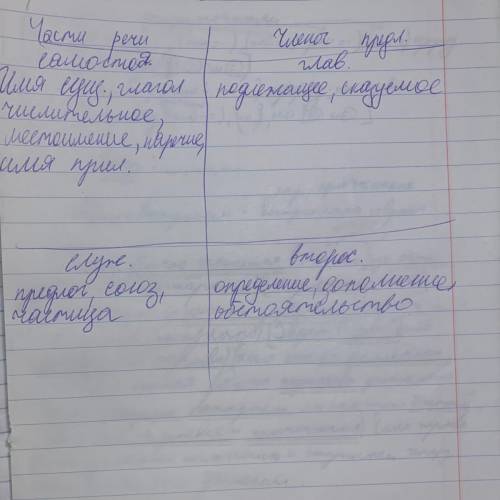 Части речи
самостоя.
Имя сущ., глагол
числительное,
местоимение, наречие,
имя прил.
Члены предл.
глав.
подлежащее, сказуемое
служ.
предлог, союз,
частица
второс.
определение, дополнение,
обстоятельство